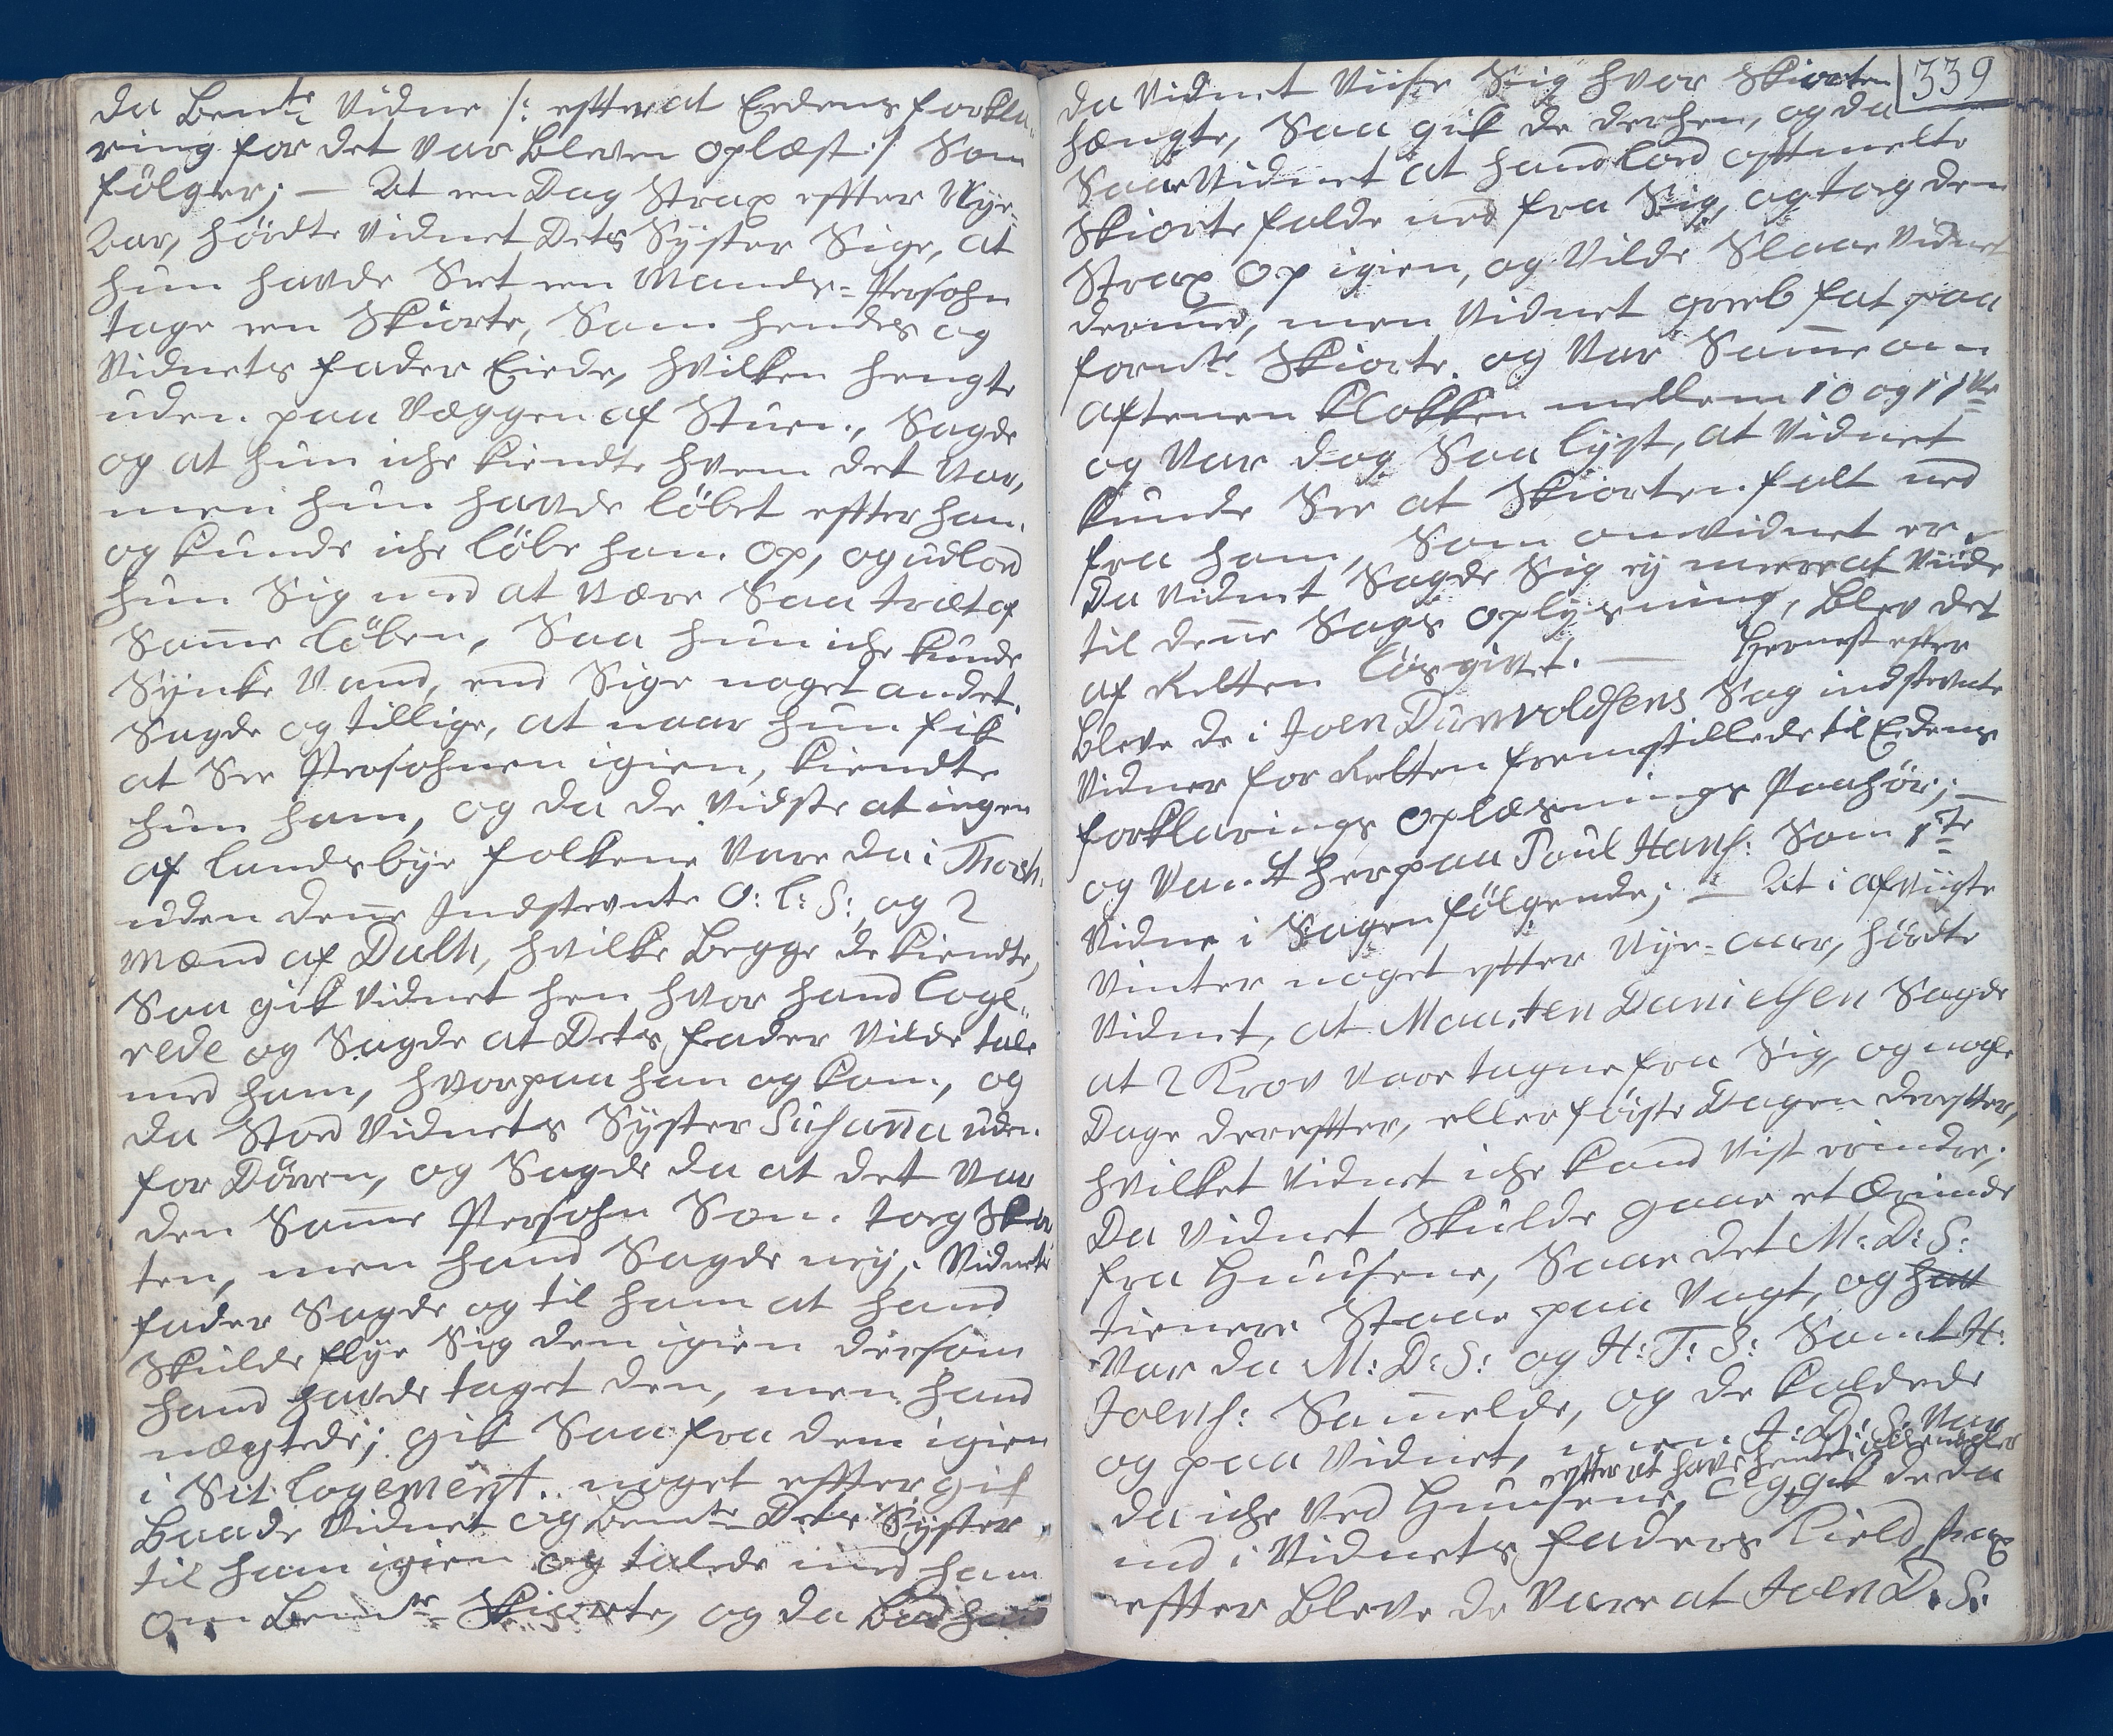 da bem.te Vidne /: effter at Eedens forkla-
ring for det var bleven oplæst :/ som
følger; — At een Dag strax effter Nye-
Aar, hørdte Vidnet Dets Syster sige, at
hun havde seet een Mands-Persohn
tage een Skiorte, som hendes og
Vidnets fader Eiede, hvilken hengte
uden paa Væggen af Stuen, sagde
og at hun iche kiendte hvem det var,
men hun havde løbet effter ham
og kunde iche løbe ham op, og udlod
hun sig med at være saa træt af
samme løben, saa hun iche kunde
synke Vand, end sige noget andet.
Sagde og tillige, at naar hun fik
at see Persohnen igien, kiendte
hun ham, og da de vidste at ingen
af landsbye folkene vare da i Thorsh:
uden denne Indstevnte O: l: S: og 2
Mænd af Dalh, hvilke begge de kiendte,
saa gik Vidnet hen hvor hand loge-
rede og sagde at Dets fader vilde tale
med ham, hvorpaa han og kom, og
da stod Vidnets Syster Susanna uden
for Dørren, og sagde da at det var
den samme Persohn som tog Skior
ten, men hand sagde ney; Vidnets
fader sagde og til ham at hand
skulde flye sig den igien dersom
hand havde taget den, men hand
nægtede; gik saa fra dem igien
i sit Logement. noget effter gik
baade Vidnet og bem.te Dets Syster
til ham igien og talede med ham
om bem.te Skiorte, og da bad hand
339
da Vidnet viise sig hvor Skiorten
hængte, saa gik de derhen, og da
saae Vidnet at hand lod offtmelte
Skiorte falde ned fra sig, og tog den
strax op igien, og vilde slaae Vidnet
dermed, men Vidnet greeb fat paa
forn.te Skiorte. og var samme om
aftenen Klokken mellem 10 og 11.ve
og var dog saa lyst, at Vidnet
kunde see at Skiorten falt ned
fra ham, som omvidnet er.
Da Vidnet sagde sig ey meere at viide
til denne Sags oplysning, blev det
af Retten løsgivet. — Hernest efter
bleve de i Joen Durvoldsens Sag indstevnte
Vidner for Retten fremstillede til Eedens
forklarings oplæsnings Paahør; —
og vandt herpaa Poul Hans: som 1.te
Vidne i Sagen følgende; — At i afvigte
Vinter noget effter Nye-aar, hørdte
Vidnet, at Maarten Danielsen sagde
at 2 Krov vare tagne fra sig, og nogle
Dage dereffter, eller første Dagen dereffter,
hvilket Vidnet iche kand vist erindre,
Da Vidnet skulde gaae et Ærinde
fra Huusene, saae det M: D: S:
tienere staae paa Vagt, og
var da M: D: S: og H: J: S: samt H:
Joens: sammelde, og de kaldede
og paa Vidnet, men J: D: S: var
effter at have hented
da iche ved Huusene, og gik de da
ind i Vidnets faders Kield, strax
effter bleve de vare at Joen D. S.